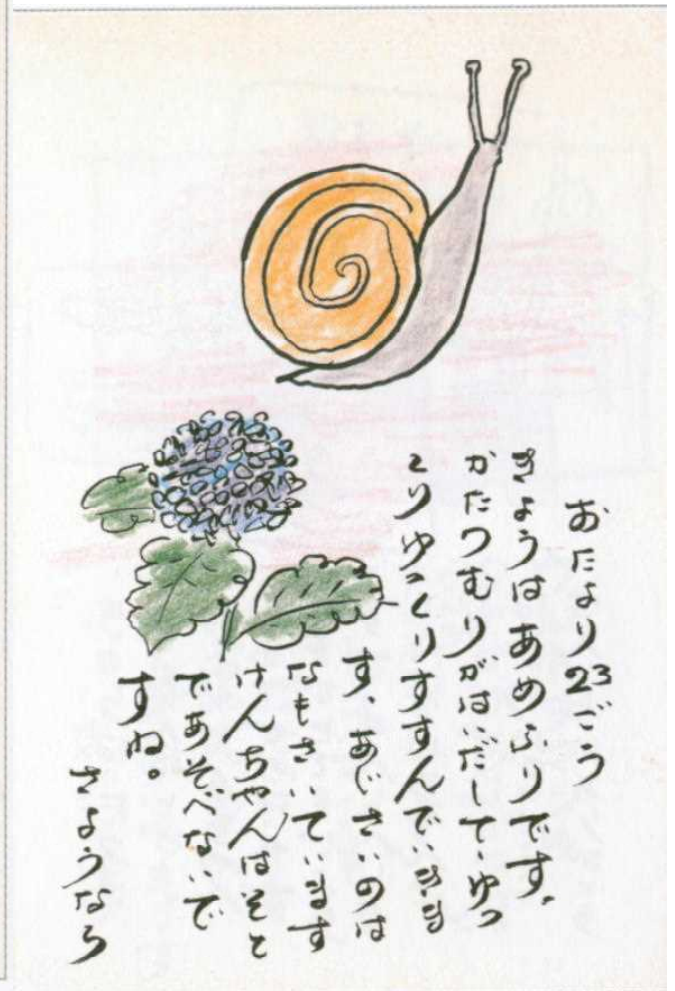 おたより23ごう
きょうはあめふりです、
かたつむりがはいだして、ゆっ
くりゆっくりすすんでいきま
す、あじさいのは
なもさいています
けんちゃんはそと
であそべないで
すね。
さようなら